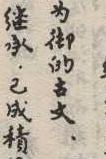 为御的古文、
继承．已成積